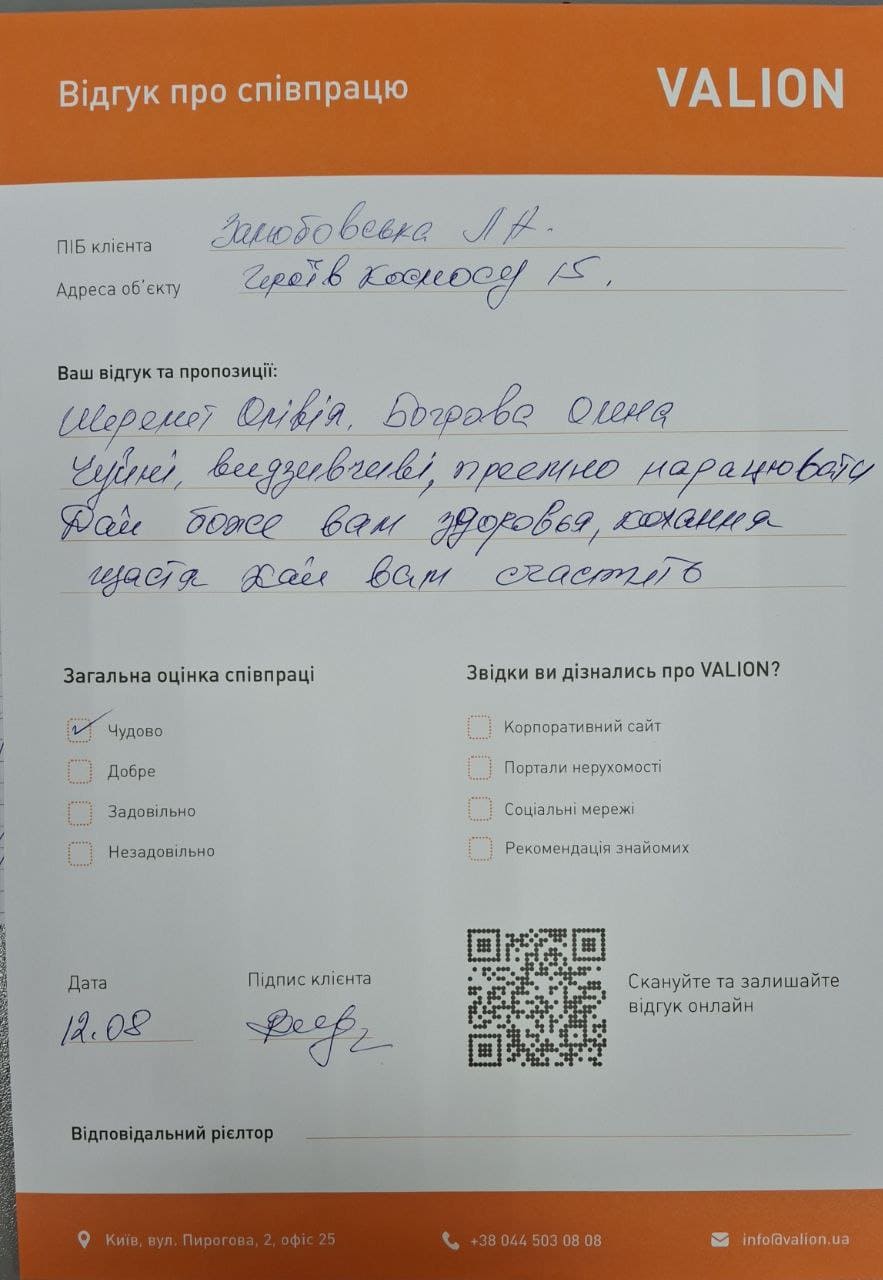 Відгук про співпрацю
VALION
ПІБ клієнта Залюбовська Л А.
Адреса об'єкту Героїв Космосу 15.
Ваш відгук та пропозиції:
Шеремет Олівія, Боброва Олена
Чуйні, видзивчиві, приємно
Дай боже вам здоровья, кохання
щастя хай вам счастить
Загальна оцінка співпраці
Чудово
Добре
Задовільно
Незадовільно
Звідки ви дізнались про VALION?
Корпоративний сайт
Портали нерухомості
Соціальні мережі
Рекомендація знайомих
Дата
12.08
Підпис клієнта
Скануйте та залишайте
відгук онлайн
Відповідальний рієлтор
Київ, вул. Пирогова, 2, офіс 25
+38 044 503 08 08
info@valion.ua